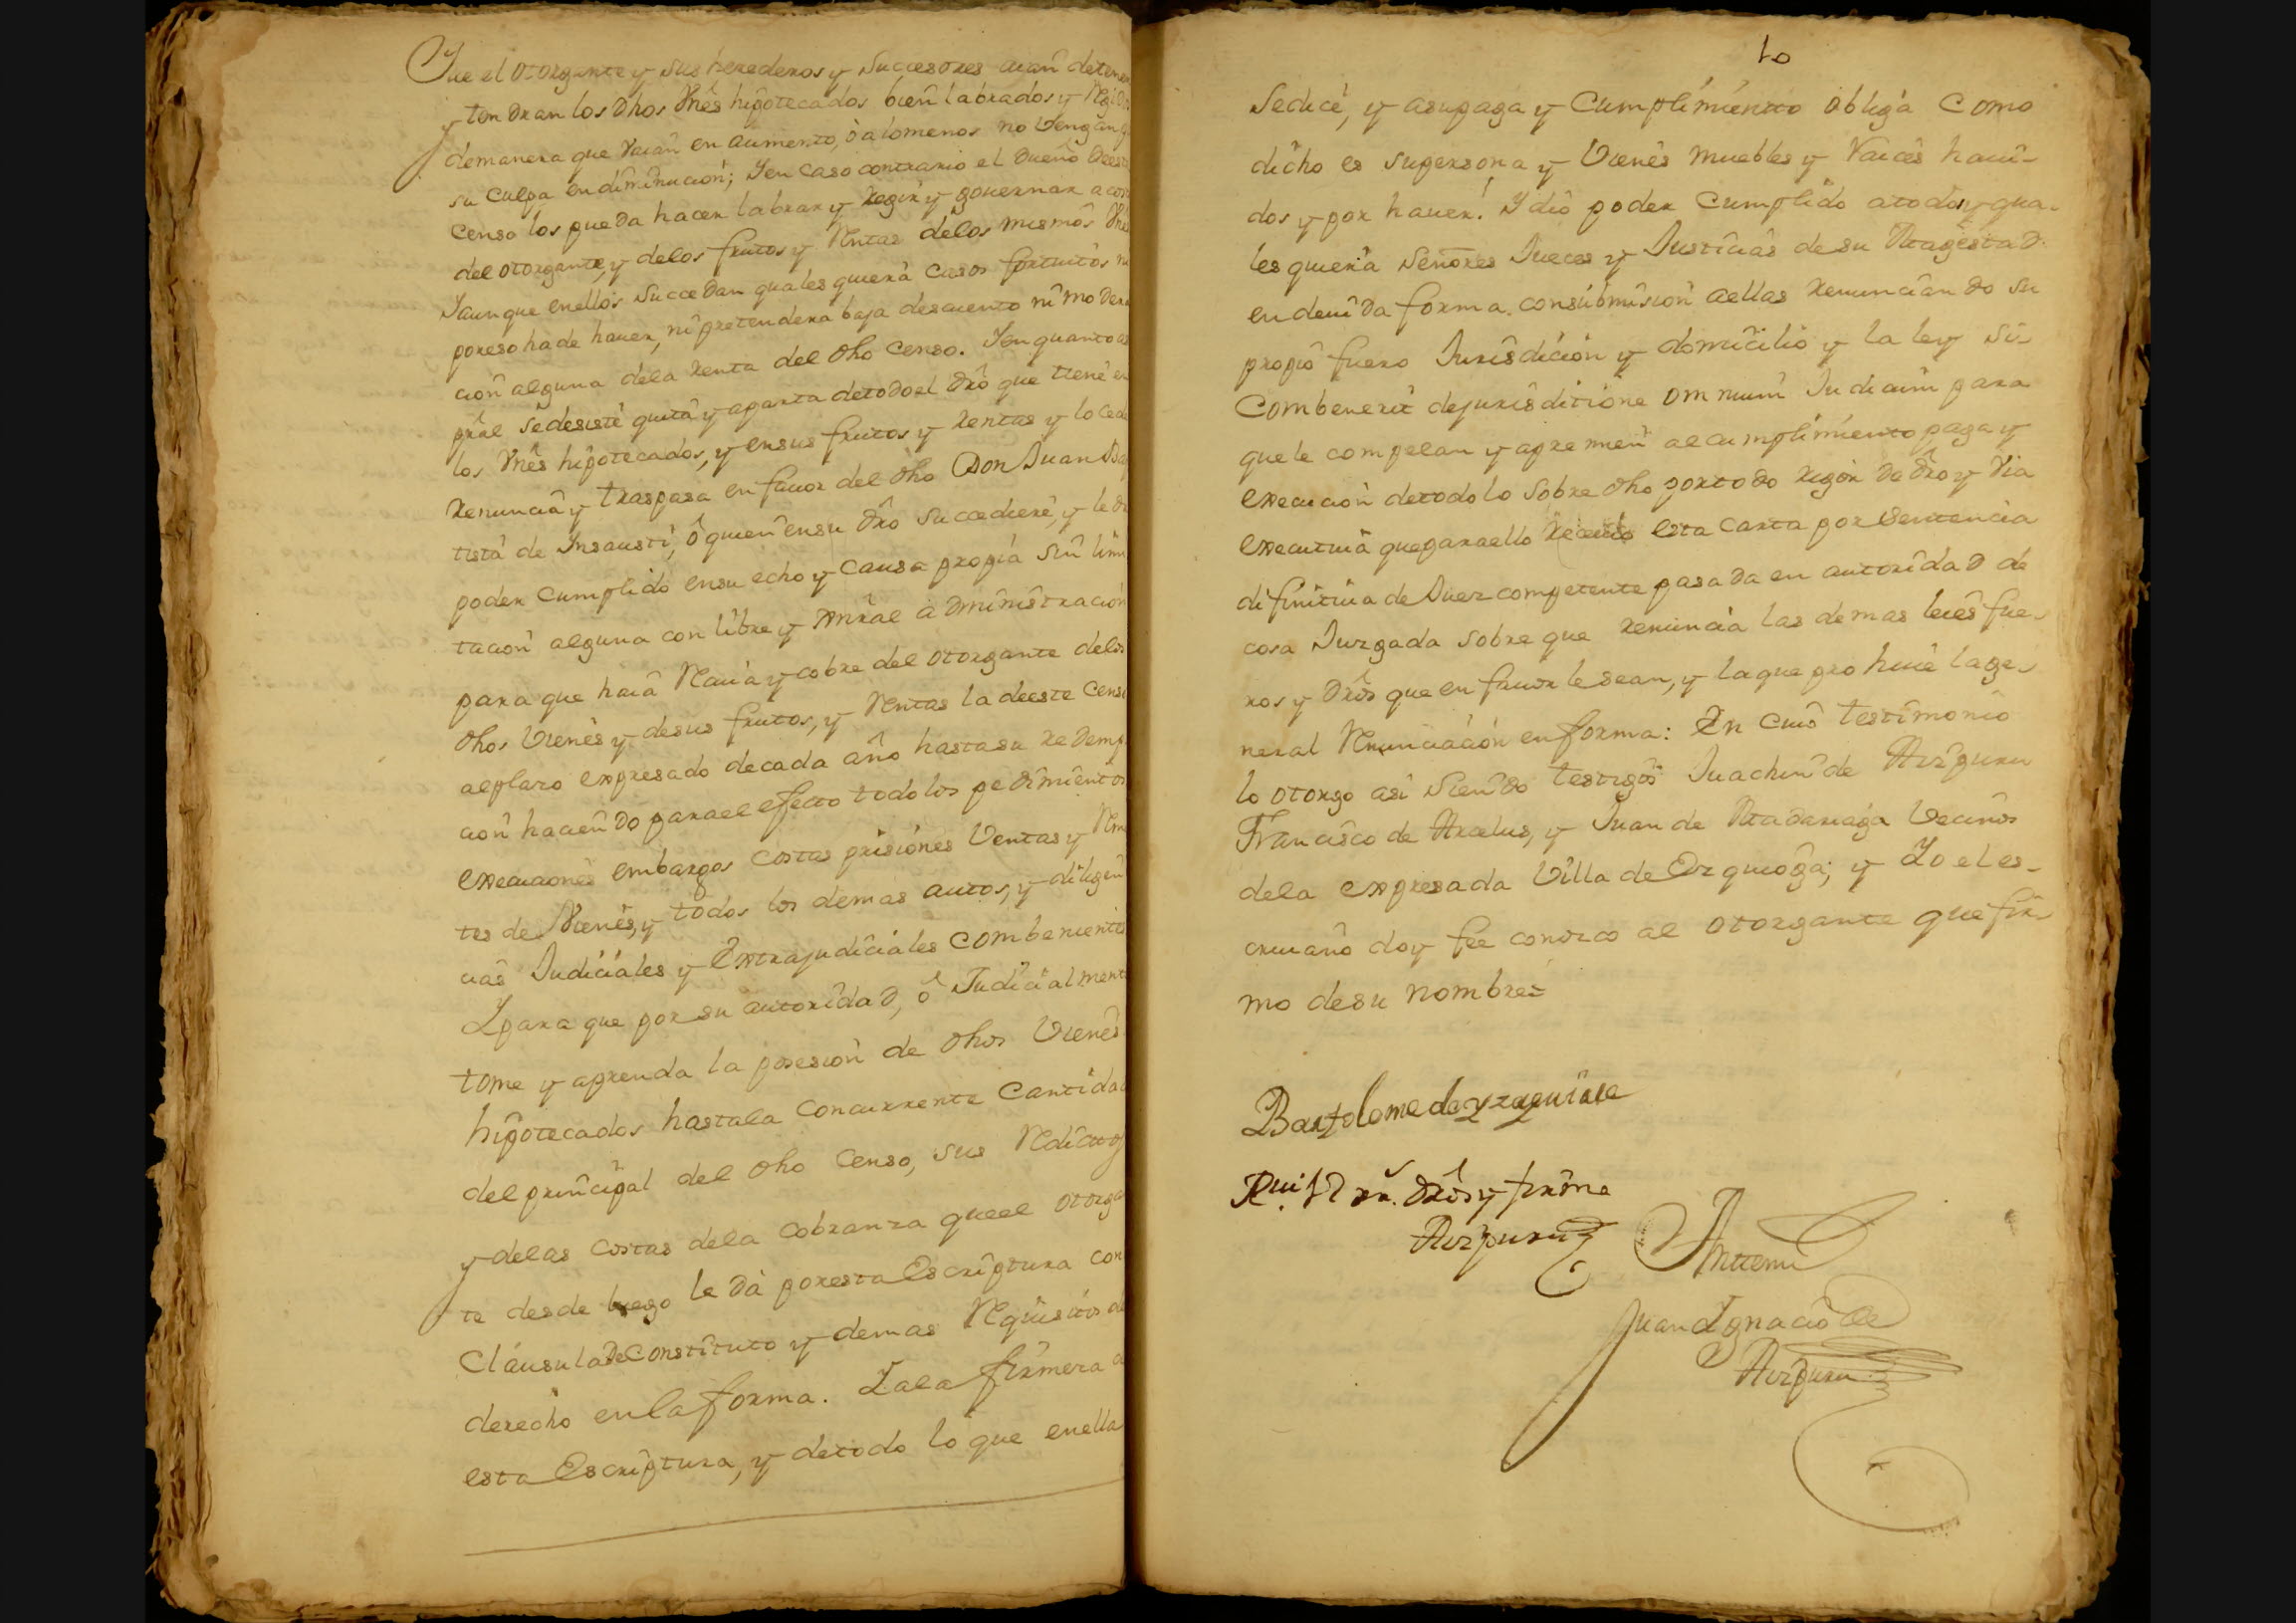 Que el otorgante y sus herederos y succesores aian de tener
y tendran los dhos Vnês hipotecados bien labrados y
de manera que vaian en aumento, ò alomenos no vengan
su culpa en diminucion; Y en caso contrario el dueño
censo los pueda hacer labrar y regir y governar a
del otorgante, y delos frutos y Rentas delos mismos
Y aunque en ellos succedan quales quiera casos fortuitos
por eso ha de haver, ni pretendera baja descuento ni
cion alguna dela renta del dho censo. Y en quanto
pral se desiste quita y aparta de todo el dro que tiene
los Vnês hipotecados, y en sus frutos y rentas y lo
Renuncia y traspasa en favor del dho Don Juan
tista de Insausti, ô quien en su dro succediere, y le
poder cumplido en su echo y causa propia sin
tacion alguna con libre y administracion
para que haia Reciva y cobre del otorgante delos
dhos Vienes y desus frutos, y Rentas la deeste
al plazo expresado de cada año hasta su redemp
cion haciendo para el efecto todo los pedimientos
execuciones embargos costas prisiones Ventas y
tes de Vienes, y todos los demas autos, y diligen
cias Judiciales y Extrajudiciales combenientes
Y para que por su autoridad, ô Judicialmente
tome y aprenda la posesion de dhos Vienes
hipotecados hasta la concurrente cantidad
del principal del dho censo, sus Reditos
y delas costas dela cobranza que el otorgan
te desde luego le dà por esta Escriptura con
Clausula de constituto y demas Requisitos
derecho en la forma. Y a la firmeza
esta Escriptura, y de todo lo que en ella
10
se dice, y asu paga y cumplimiento obliga como
dicho es su persona y Vienes muebles y raices havi-
dos y por haver! Y dio poder cumplido a todos y qua-
les quiera señores Jueces y Justicias de su Magestad
en devida forma con submision a ellas renunciando su
propio fuero Jurisdicion y domicilio y la ley si
combenerit de jurisditione omnium Judicum para
que le compelan y apremien al cumplimiento paga y
execucion de todo lo sobre dho por todo rigor de dro y via
executiva que para ello esta carta por sentencia
difinitiva de Juez competente pasada en autoridad de
cosa Juzgada sobre que renuncia las demas leies fue-
ros y dros que en favor le sean, y la que prohive la ge-
neral Renunciacion en forma: En cuio testimonio
lo otorgo asi siendo testigos Juachin de Aizpuru
Francisco de Arcelus, y Juan de Madariaga Vecinos
dela expresada Villa de Ezquioga; y Yo el es-
crivano doy fee conozco al otorgante que fir-
mo de su nombre=
Bartolome de yzaguirre
drôs y firme
Aizpuru
Antemi
Juan Ygnacio de
Aizpuru